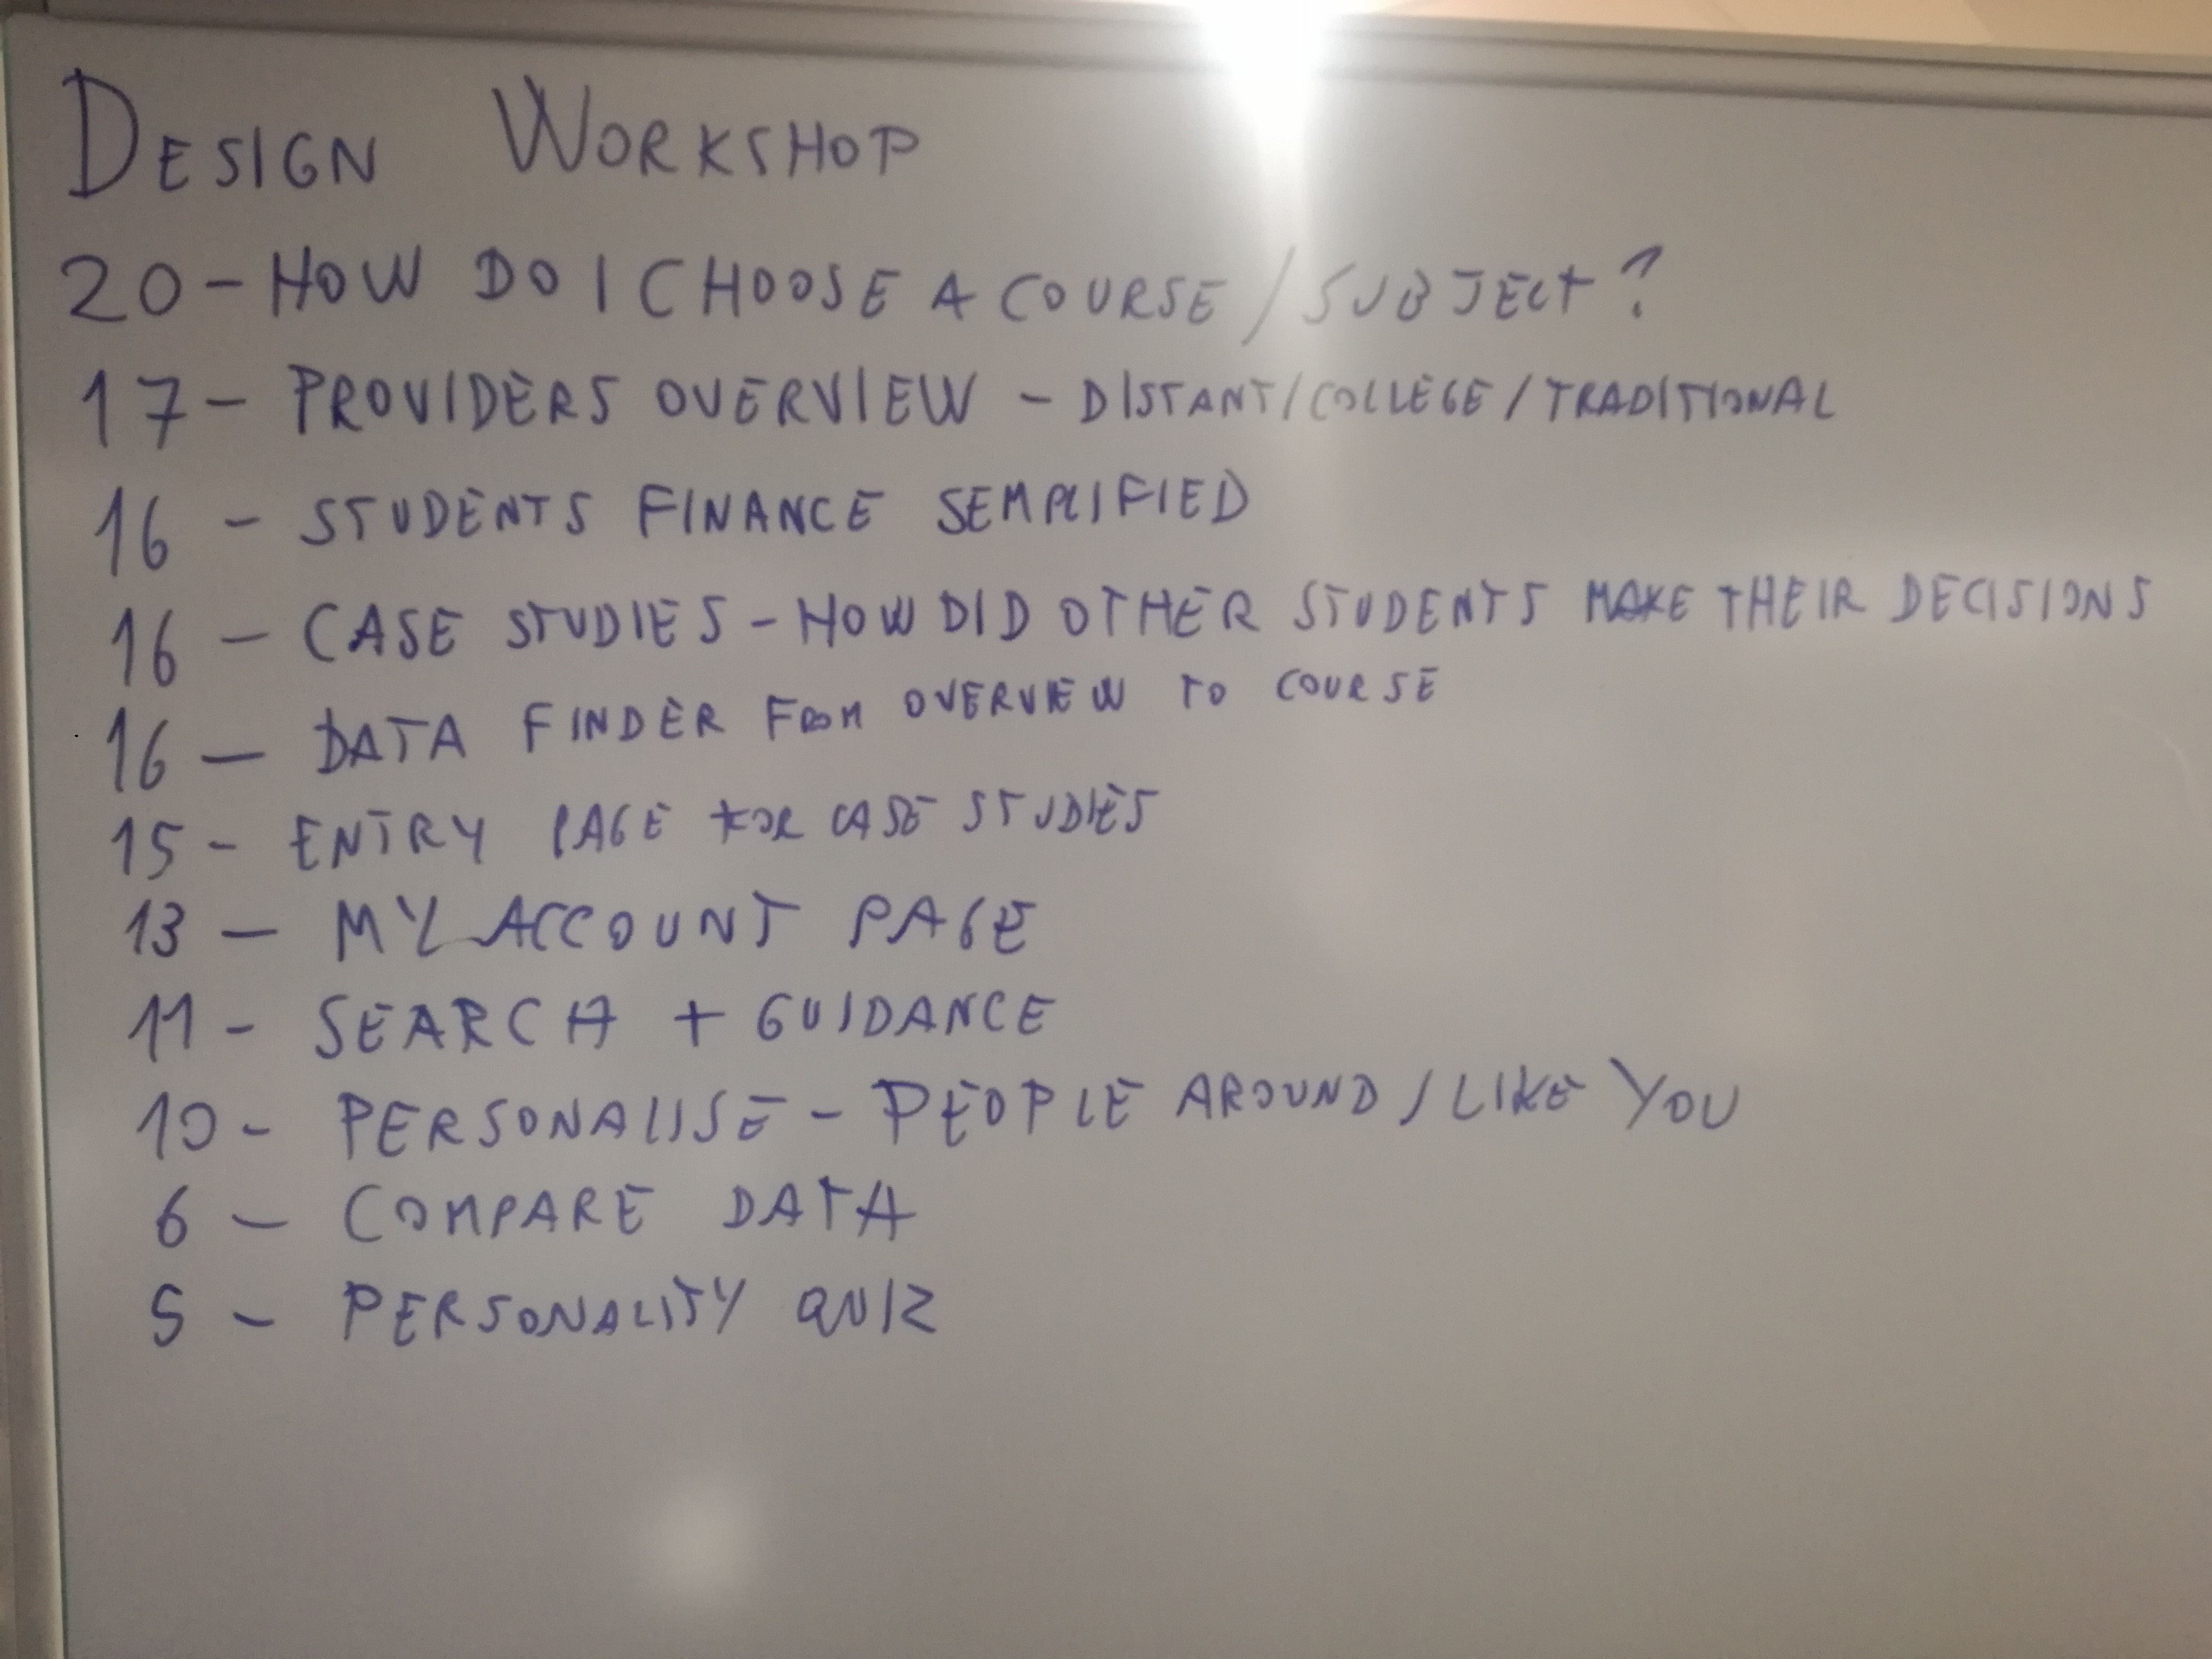 DESIGN WORKSHOP
20 - HOW DO I CHOOSE A COURSE / SUBJECT?
17 - PROVIDERS OVERVIEW - DISTANT/COLLEGE/TRADITIONAL
16 - STUDENTS FINANCE SEMPLIFIED
16 - CASE STUDIES - HOW DID OTHER STUDENTS MAKE THEIR DECISIONS
16 - DATA FINDER FROM OVERVIEW TO COURSE
15 - ENTRY PAGE FOR CASE STUDIES
13 - MY ACCOUNT PAGE
11 - SEARCH + GUIDANCE
10 - PERSONALISE - PEOPLE AROUND / LIKE YOU
6 - COMPARE DATA
5 - PERSONALITY QUIZ